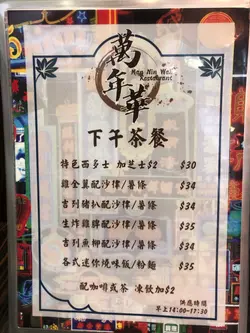 萬年華
Man Nin Wah
Restaurant
下午茶餐
特色西多士 加芝士$2 $30
雞全翼配沙律/薯條 $34
吉列豬扒配沙律/薯條 $34
生炸雞髀配沙律/薯條 $35
吉列魚柳配沙律/薯條 $34
各式迷你燒味飯/粉麵 $35
配咖啡或茶 凍飲加$2
供應時間
早上14:00-17:30